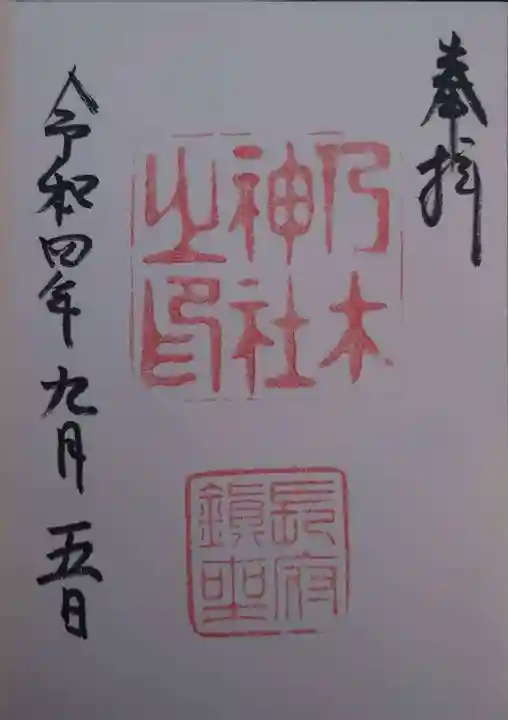 奉拝
乃木
神社
之印
長府
鎮座
令和四年九月五日